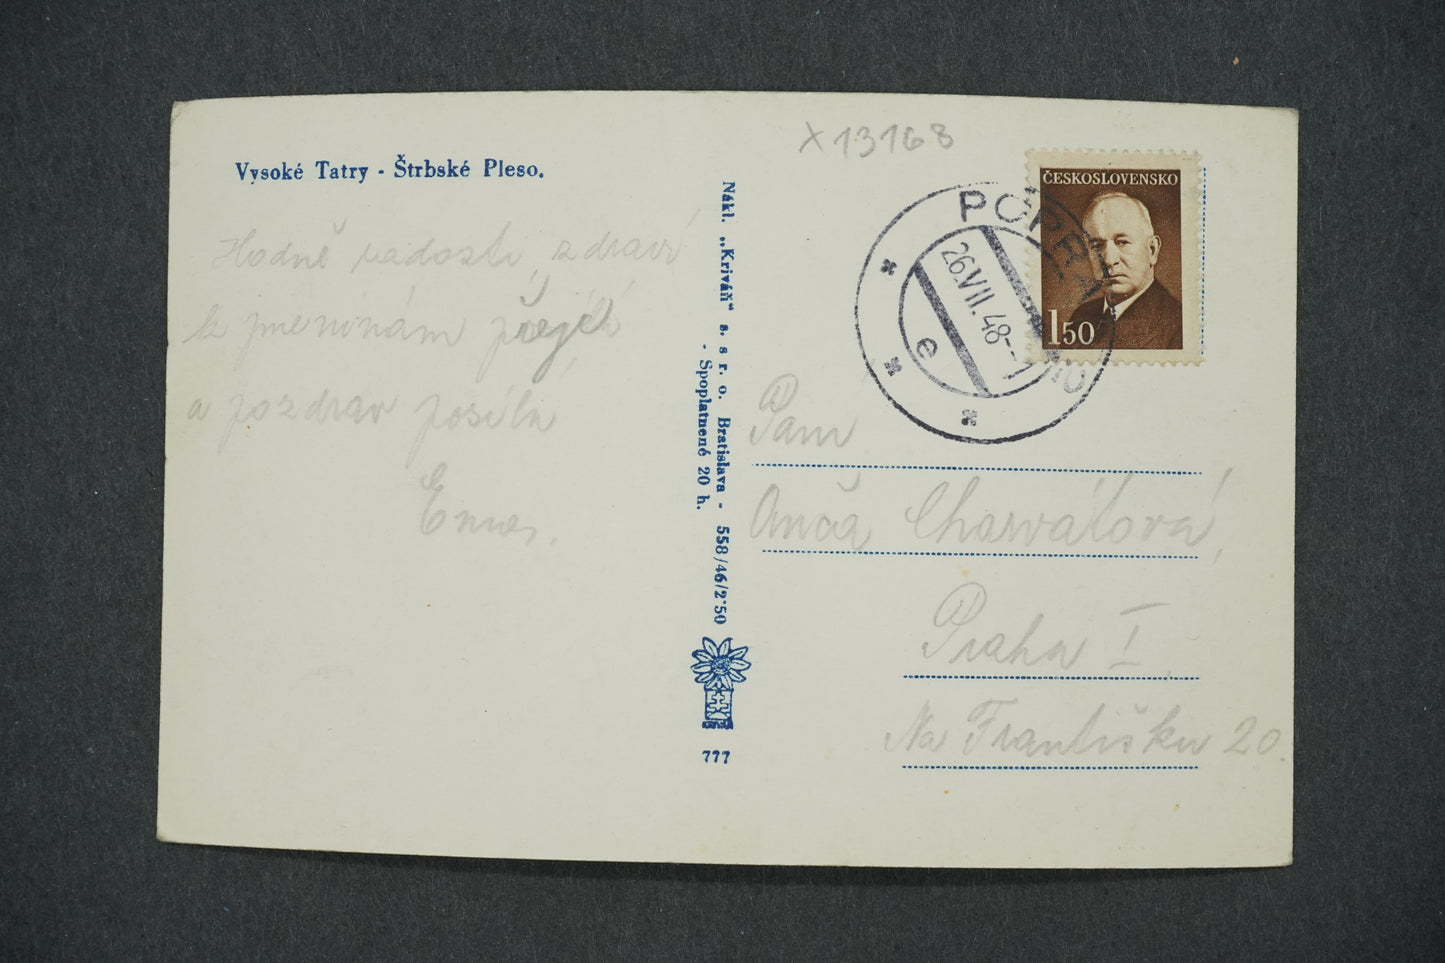 Vysoké Tatry - Štrbské Pleso.
Hodně radosti, zdraví
k jmeninám přeje
a pozdrav posílá
x 13168
POPRAD
26.VII.48
e
ČESKOSLOVENSKO
1 50
Nákl. „Kriváň" s. s r. o. Bratislava - 558/46/2·50
- Spoplatnené 20 h.
777
Paní
Anča Charvátová,
Praha I.
Na Františku 20.